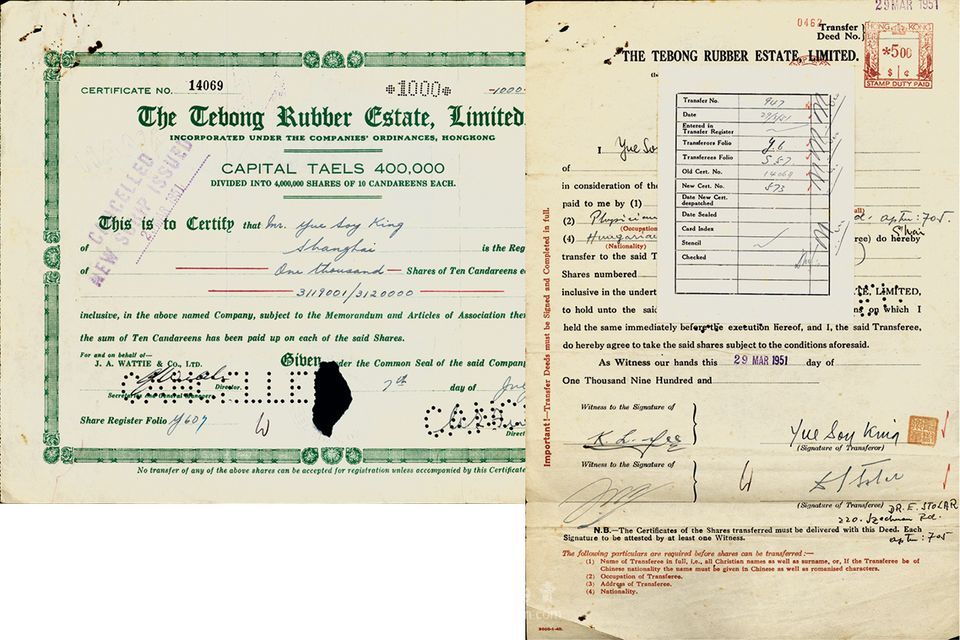 CERTIFICATE NO. 14069 *1000* -1000-
The Tebong Rubber Estate, Limited
INCORPORATED UNDER THE COMPANIES' ORDINANCES, HONGKONG
CAPITAL TAELS 400,000
DIVIDED INTO 4,000,000 SHARES OF 10 CANDAREENS EACH.
CANCELLED
NEW SCRIP ISSUED
This is to Certify that Mr. Yue Soy King
of Shanghai is the Reg
of One thousand Shares of Ten Candareens e
3119001/3120000
inclusive, in the above named Company, subject to the Memorandum and Articles of Association ther
the sum of Ten Candareens has been paid up on each of the said Shares.
For and on behalf of—
J. A. WATTIE & Co., LTD.
Given under the Common Seal of the said Compan
CANCELLE
Director.
Secretaries and General Managers.
7th day of
Share Register Folio Y607
CANC
Direct
No transfer of any of the above shares can be accepted for registration unless accompanied by this Certificate
29 MAR 1951
0462 Transfer
Deed No.
HONG KONG
*500
$ ¢
STAMP DUTY PAID
THE TEBONG RUBBER ESTATE, LIMITED.
Transfer No. 947
Date
Entered in
Transfer Register
Transferors Folio Y.6
Transferees Folio S.57
Old Cert. No. 14069
New Cert. No. 573
Date New Cert.
despatched
Date Sealed
Card Index
Stencil
Checked
I Yue So
of
in consideration of the
paid to me by (1)
(2) Physician
(Occupation
aptm: 705
(4) Hungarian
(Nationality)
ee) do hereby
transfer to the said T
Shares numbered
inclusive in the undert
TE, LIMITED,
to hold unto the said
ns on which I
held the same immediately before the execution hereof, and I, the said Transferee,
do hereby agree to take the said shares subject to the conditions aforesaid.
As Witness our hands this 29 MAR 1951 day of
One Thousand Nine Hundred and
Important!—Transfer Deeds must be Signed and Completed in full.
Witness to the Signature of
Yue Soy King
(Signature of Transferor)
Witness to the Signature of
(Signature of Transferee) DR. E. STOLAR
220. Szechuen Rd.
aptm: 705
N.B.—The Certificates of the Shares transferred must be delivered with this Deed. Each
Signature to be attested by at least one Witness.
The following particulars are required before shares can be transferred:—
(1) Name of Transferee in full, i.e., all Christian names as well as surname, or, If the Transferee be of
Chinese nationality the name must be given in Chinese as well as romanised characters.
(2) Occupation of Transferee.
(3) Address of Transferee.
(4) Nationality.